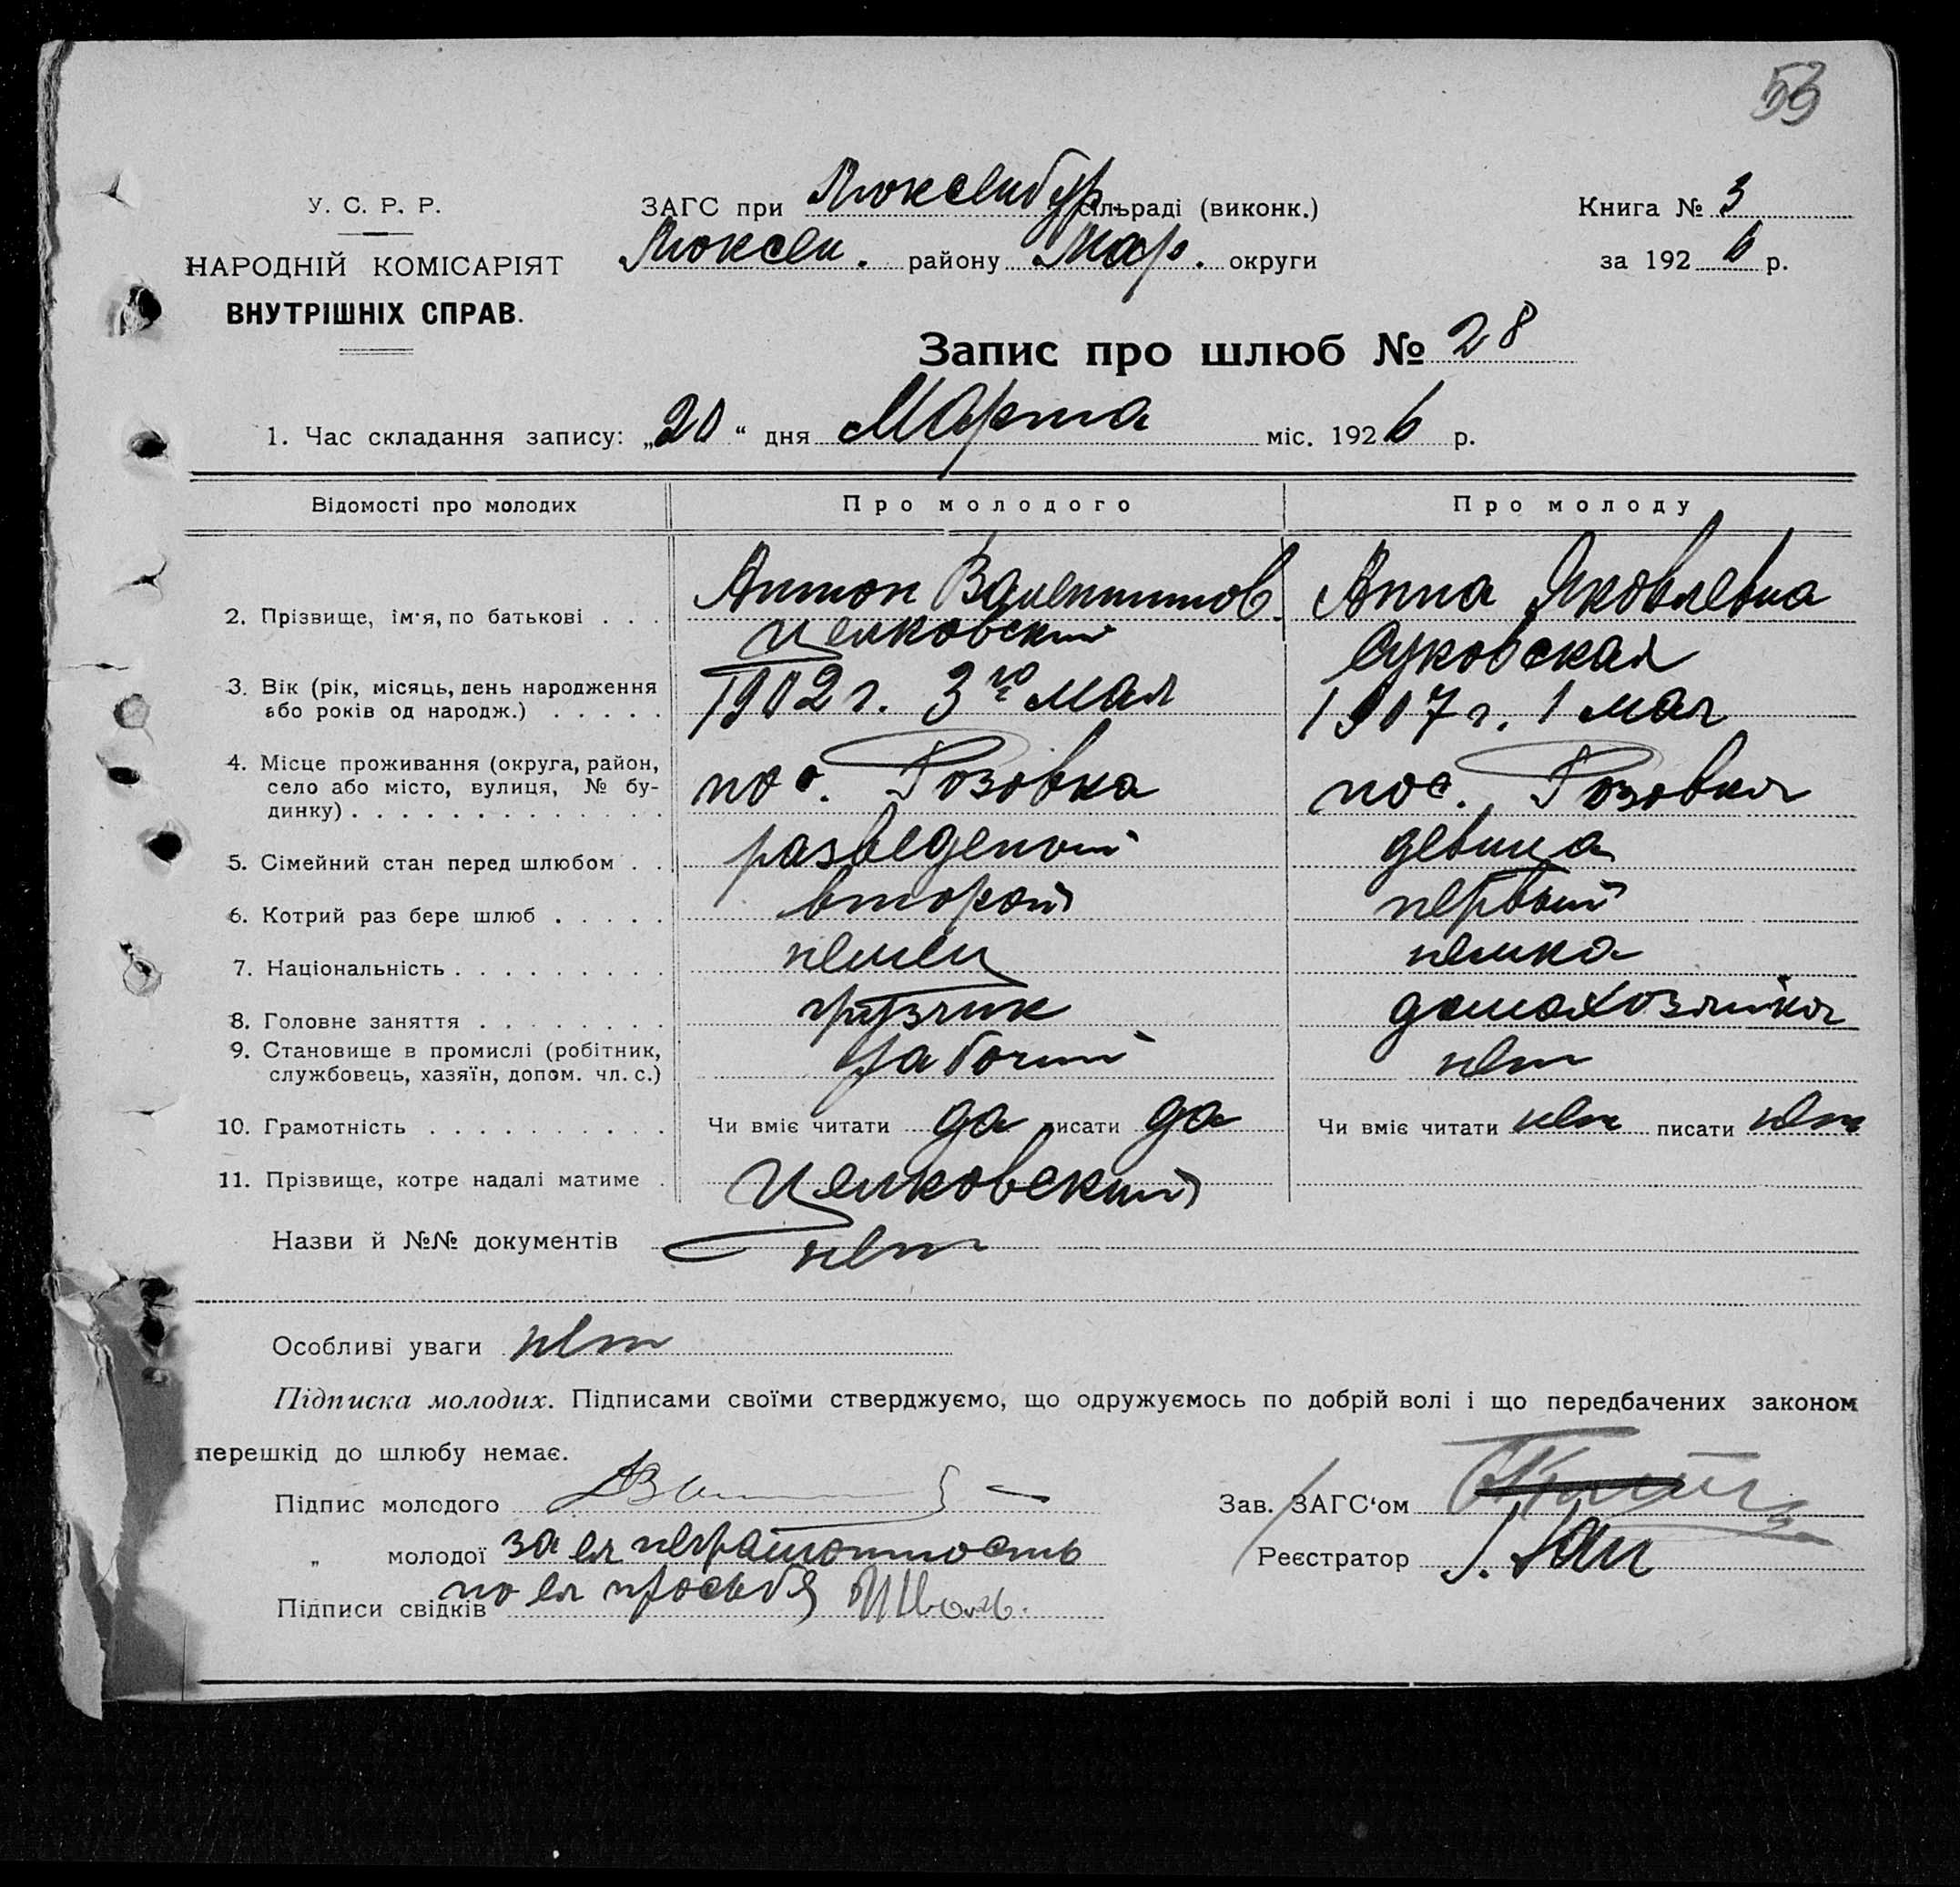 53
У. С. Р. Р.
НАРОДНІЙ КОМІСАРІЯТ
ВНУТРІШНІХ СПРАВ.
ЗАГС при Люксембур. сільраді (виконк.)
Люксем. району Мар. округи
Книга № 3
за 1926 р.
Запис про шлюб № 28
1. Час складання запису: „20“ дня Марта міс. 1926 р.
Відомості про молодих Про молодого Про молоду
2. Прізвище, ім'я, по батькові . . . Антон Валентинов. Анна Яковлевна
Целковский Суковская
3. Вік (рік, місяць, день народження або років од народж.) . . . . . 1902 г. 3го мая 1907 г. 1 мая
4. Місце проживання (округа, район, село або місто, вулиця, № будинку) . . . . . . . . . . . . . пос. Розовка пос. Розовка
5. Сімейний стан перед шлюбом . . разведеной девица
6. Котрий раз бере шлюб . . . . . второй первый
7. Національність . . . . . . . . . немец немка
8. Головне заняття . . . . . . . . грузчик домахозяйка
9. Становище в промислі (робітник, службовець, хазяїн, допом. чл. с.) рабочий нет
10. Грамотність . . . . . . . . . . Чи вміє читати да писати да Чи вміє читати нет писати нет
11. Прізвище, котре надалі матиме . Целковский
Назви й №№ документів нет
Особливі уваги нет
Підписка молодих. Підписами своїми стверджуємо, що одружуємось по добрій волі і що передбачених законом
перешкід до шлюбу немає.
Підпис молодого
Зав. ЗАГС‘ом
„ молодої за ея неграмотность
Реєстратор
по ея просьбе
Підписи свідків